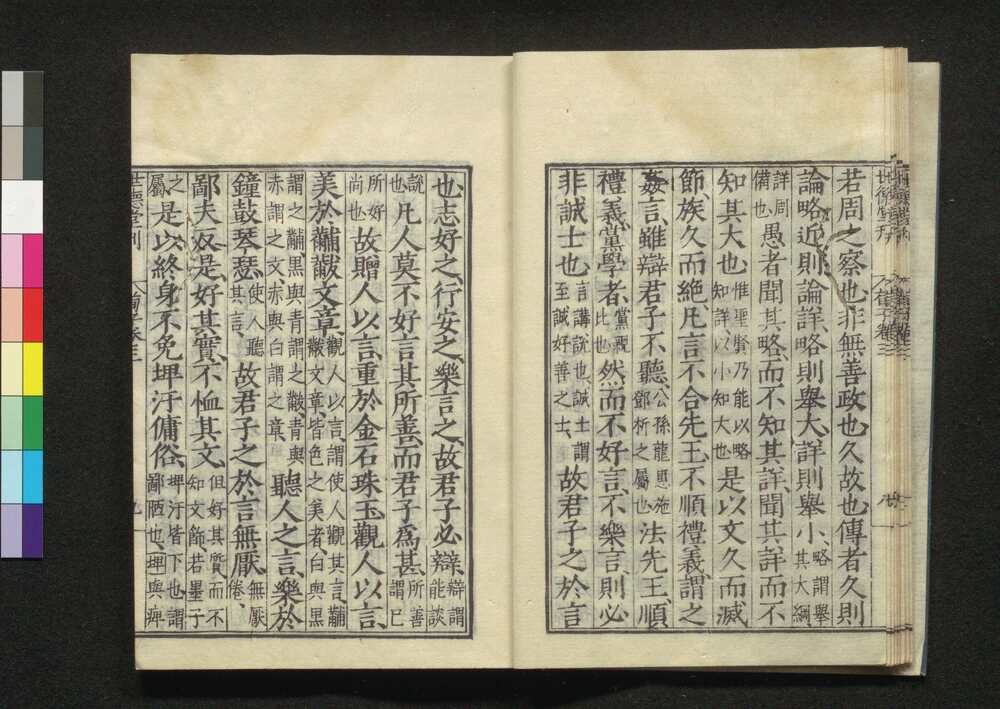 若周之察也非無善政也久故也傳者久則
論略近則論詳略則舉大詳則舉小略謂舉其大綱
詳周備也愚者聞其略而不知其詳聞其詳而不
知其大也惟聖賢乃能以略知詳以小知大也是以文久而滅
節族久而絕凡言不合先王不順禮義謂之
姦言雖辯君子不聽公孫龍惠施鄧析之屬也法先王順
禮義黨學者黨親比也然而不好言不樂言則必
非誠士也言講說也誠士謂至誠好善之士故君子之於言
也志好之行安之樂言之故君子必辯辯謂能談
說也凡人莫不好言其所善而君子為甚所善謂己
所好尚也故贈人以言重於金石珠玉觀人以言
美於黼黻文章觀人以言謂使人觀其言黼黻文章皆色之美者白與黑
謂之黼黑與青謂之黻青與赤謂之文赤與白謂之章聽人之言樂於
鐘鼓琴瑟使人聽其言故君子之於言無厭無厭倦
鄙夫反是好其實不恤其文但好其質而不知文飾若墨子
之屬是以終身不免埤汙傭俗埤汙皆下也謂鄙陋也埤與痺
世德堂刊